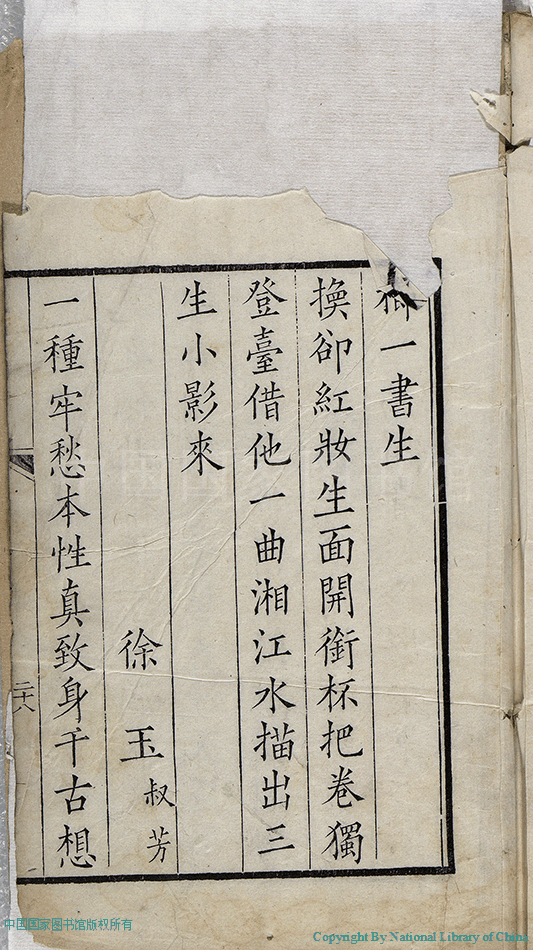 一書生
換卻紅妝生面開銜杯把卷獨
登臺借他一曲湘江水描出三
生小影來
徐玉叔芳
一種牢愁本性真致身千古想
二十八
中国国家图书馆版权所有
Copyright By National Library of China